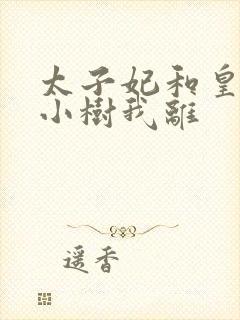 太子妃和皇
小樹我離
遥香